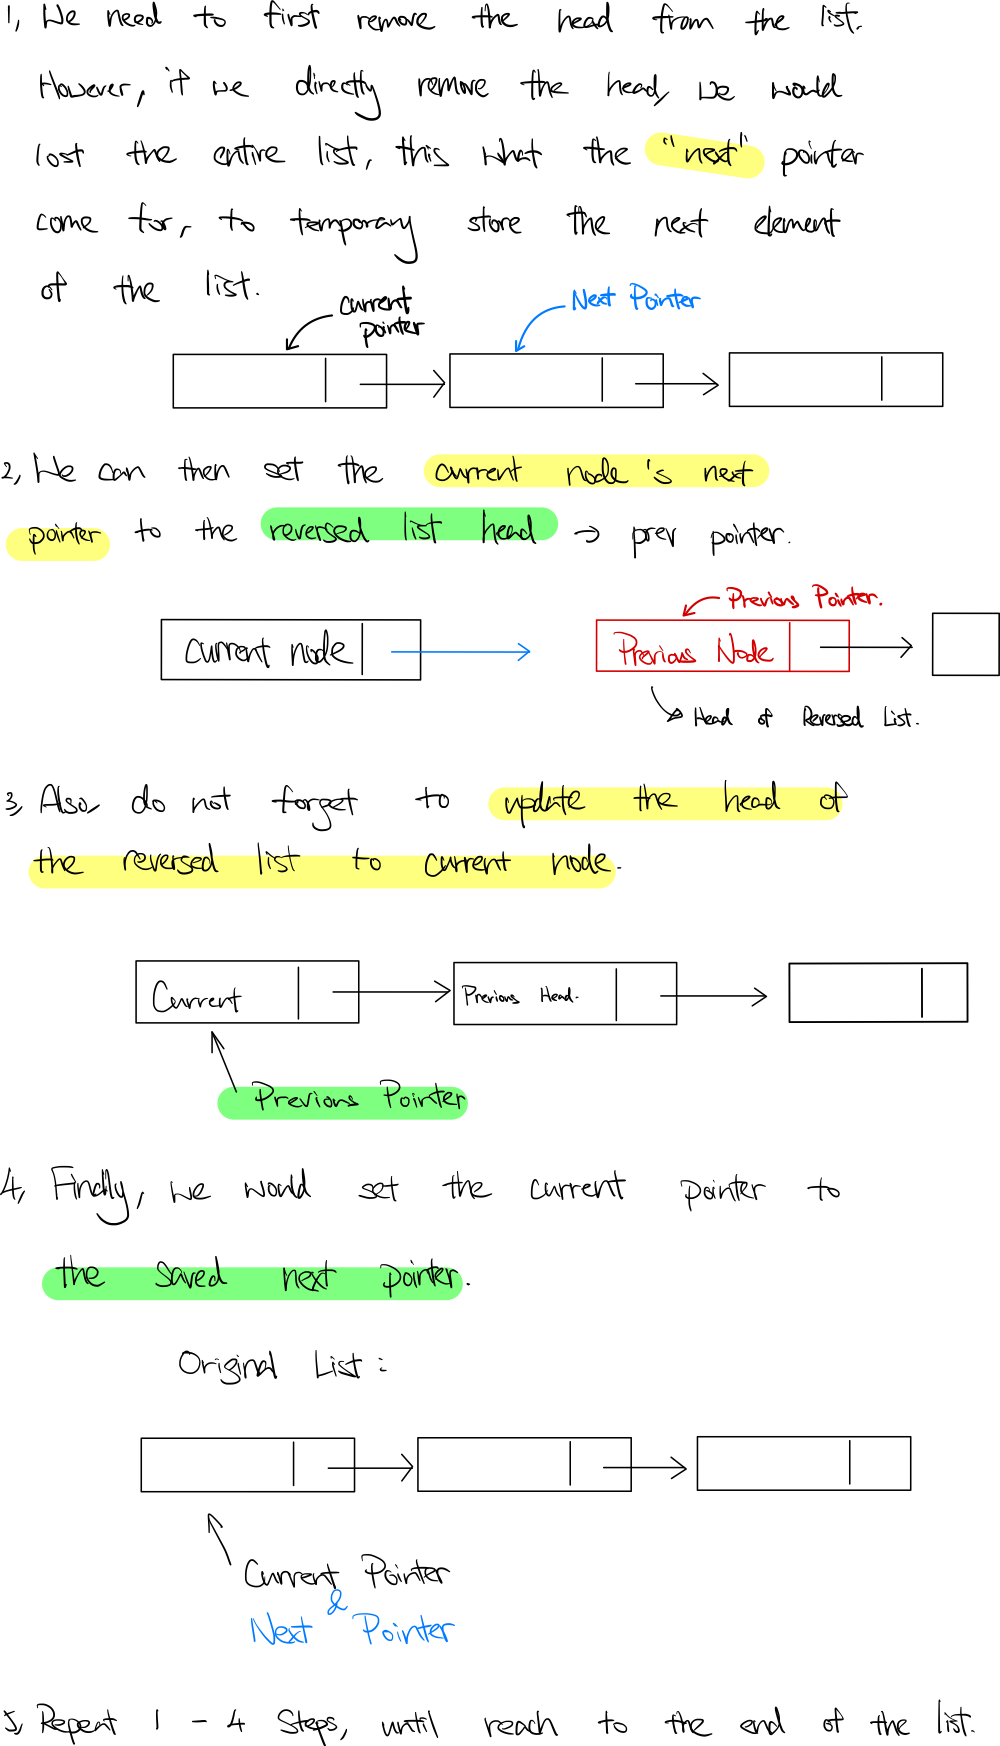 1, We need to first remove the head from the list.
However, if we directly remove the head, we would
lost the entire list, this what the "next" pointer
come for, to temporary store the next element
of the list.
Current
pointer
Next Pointer
2, We can then set the current node's next
pointer to the reversed list head → prev pointer.
Previous Pointer.
Current node
Previous Node
Head of Reversed List.
3, Also, do not forget to update the head of
the reversed list to current node.
Current
Previous Head.
Previous Pointer
4, Finally, we would set the current pointer to
the saved next pointer.
Original List:
Current Pointer
&
Next Pointer
5, Repeat 1 - 4 Steps, until reach to the end of the list.